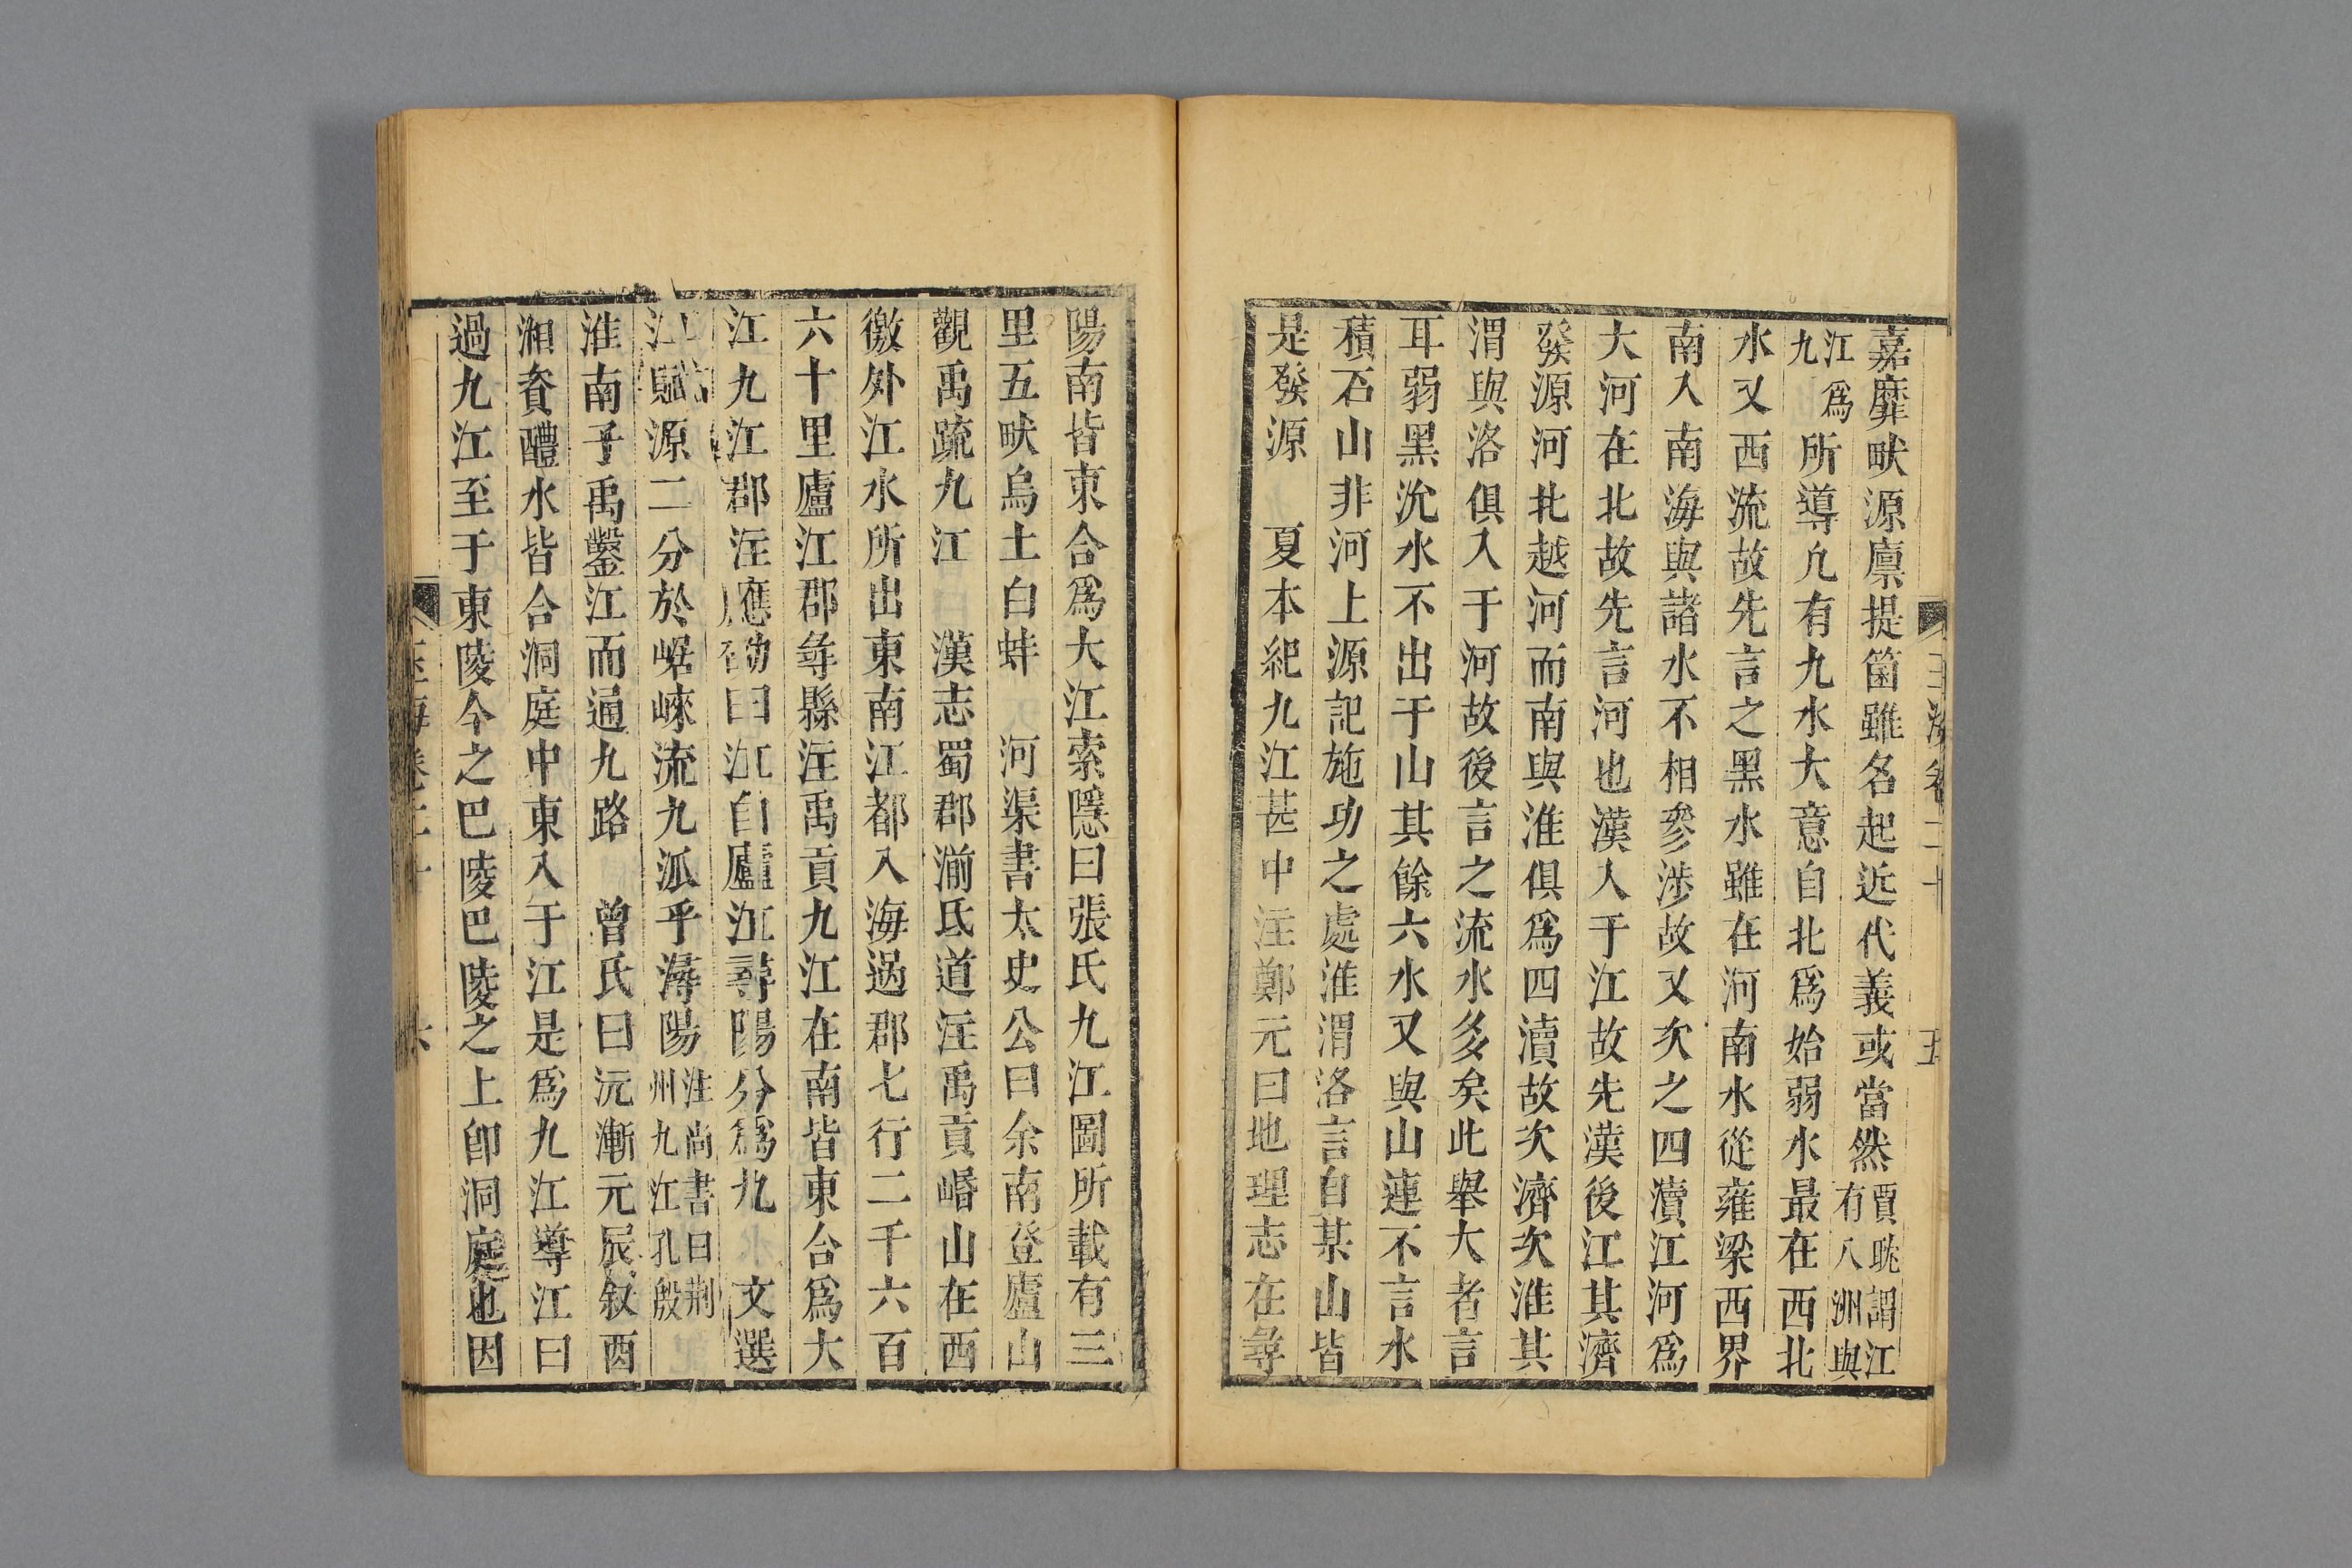 嘉靡畎源廪提箘雖名起近代義或當然賈耽謂江有八洲與
江爲九所導凢有九水大意自北爲始弱水最在西北
水又西流故先言之黑水雖在河南水從雍梁西界
南入南海與諸水不相參涉故又次之四瀆江河爲
大河在北故先言河也漢入于江故先漢後江其濟
發源河北越河而南與淮俱爲四瀆故次濟次淮其
渭與洛俱入于河故後言之流水多矣此舉大者言
耳弱黑沇水不出于山其餘六水又與山連不言水
積石山非河上源記施功之處淮渭洛言自某山皆
是發源 夏本紀九江甚中注鄭元曰地理志在尋
玉海卷二十 五
陽南皆東合爲大江索隱曰張氏九江圖所載有三
里五畎烏土白蚌 河渠書太史公曰余南登廬山
觀禹疏九江 漢志蜀郡湔氐道注禹貢崏山在西
徼外江水所出東南江都入海過郡七行二千六百
六十里廬江郡尋縣注禹貢九江在南皆東合爲大
江九江郡注應劭曰江自廬江尋陽分爲九 文選
江賦源二分於崌崍流九派乎潯陽注尚書曰荆州九江孔殷
淮南子禹鑿江而通九路 曾氏曰沅漸元辰叙酉
湘資醴水皆合洞庭中東入于江是爲九江導江曰
過九江至于東陵今之巴陵巴陵之上卽洞庭也因
玉海卷二十 六